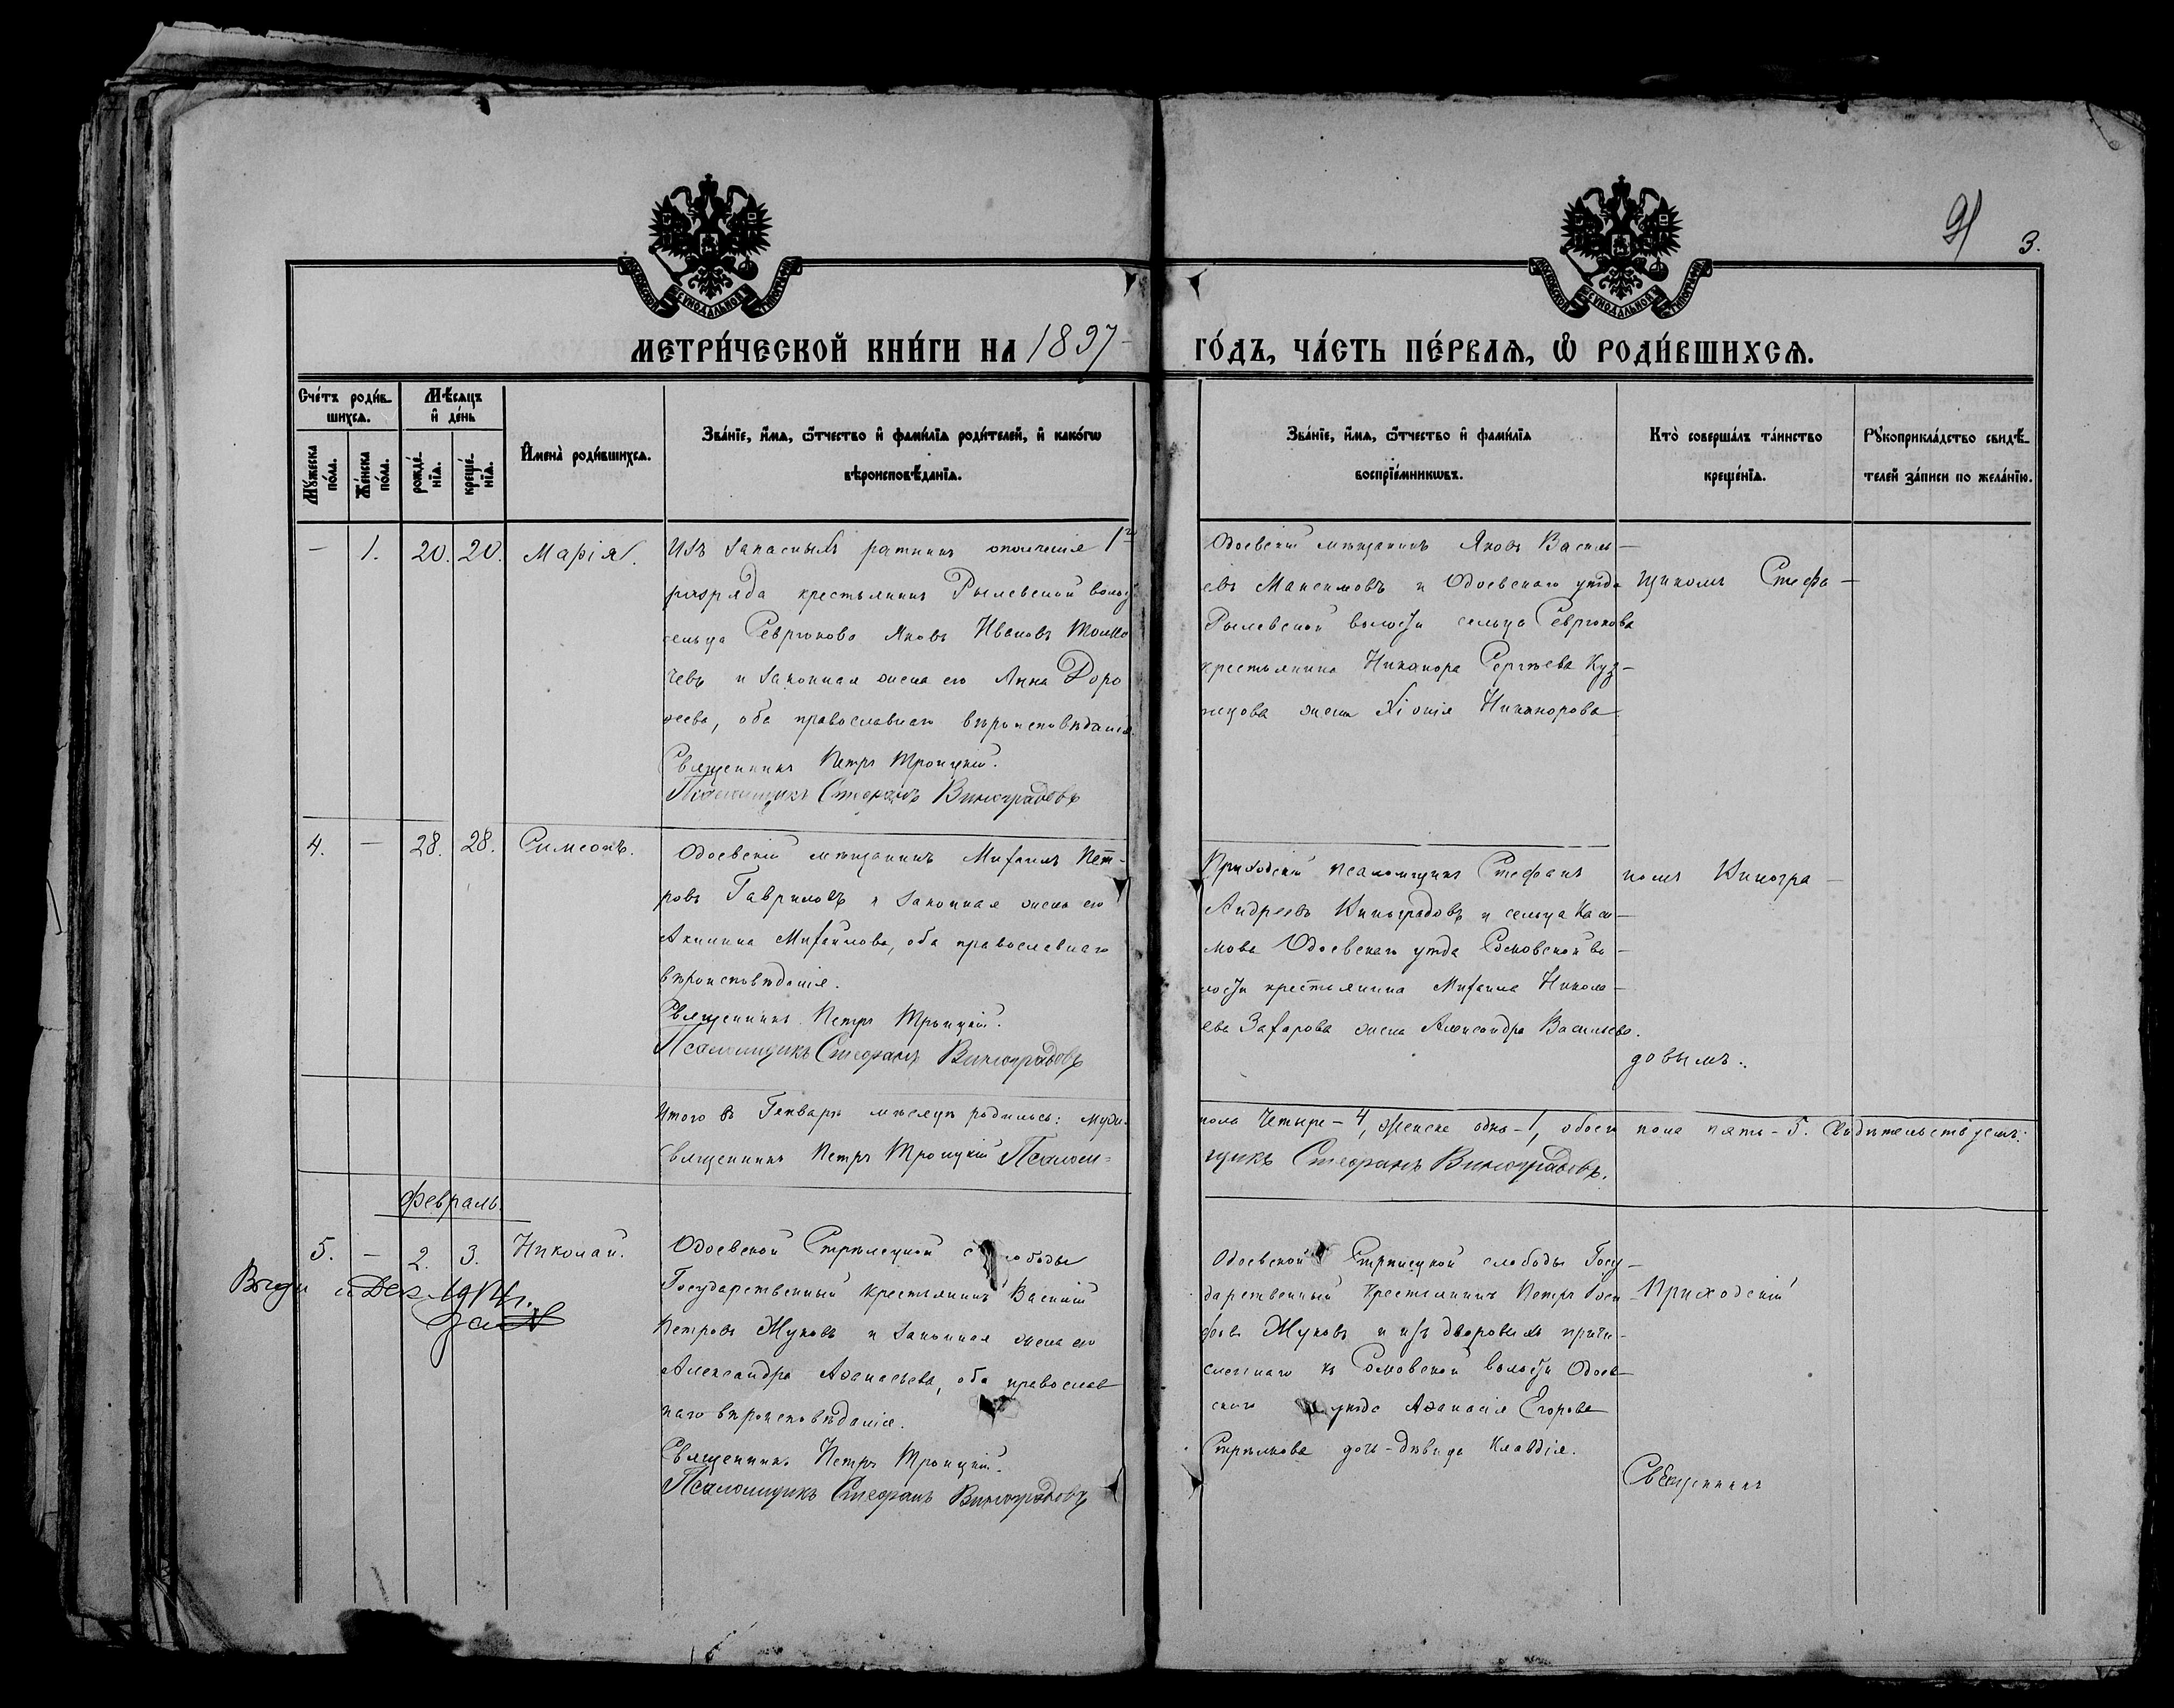 3.
МОСКОВСКОЙ СѴНОДАЛЬНОЙ ТИПОГРАФІИ
МОСКОВСКОЙ СѴНОДАЛЬНОЙ ТИПОГРАФІИ
МЕТРИ́ЧЕСКОЙ КНИ́ГИ НА 1897
ГО́ДЪ, ЧА́СТЬ ПЕ́РВАѦ, Ѡ҆ РОДИ́ВШИХСѦ.
Сче́тъ роди́в-
шихсѧ.
Мꙋ́жеска по́ла.
Же́нска по́ла.
Мѣ́сѧцъ
и҆ де́нь
рожде́-
нїѧ.
креще́-
нїѧ.
И҆мена̀ роди́вшихсѧ.
Зва́нїе, и҆́мѧ, ѻ҆́тчество и҆ фами́лїѧ роди́телей, и҆ како́гѡ
вѣроисповѣ́данїѧ.
Зва́нїе, и҆́мѧ, ѻ҆́тчество и҆ фами́лїѧ
воспрїе́мникѡвъ.
Кто̀ соверша́лъ та́инство
креще́нїѧ.
Рꙋкоприкла́дство свидѣ́-
телей за́писи по жела́нїю.
– 1. 20. 20. Марія.
Изъ запасныхъ ратникъ ополченія 1го
разряда крестьянинъ Рылевской волос
сельца Севрюково Яковъ Ивановъ
чевъ и законная жена его Анна Доро
ѳеева, оба православнаго вѣроисповѣданія.
Священникъ Петръ Троицкій.
Псаломщикъ Стефанъ Виноградовъ
Одоевскій мѣщанинъ Яковъ Василь-
евъ Максимовъ и Одоевскаго уѣзда
Рылевской волости сельца Севрюкова
крестьянина Никанора Сергѣева Куз-
нецова жена Хіонія Никанорова
щикомъ Стефа-
4. – 28. 28. Симеонъ.
Одоевскій мѣщанинъ Михаилъ Пет-
ровъ Гавриловъ и законная жена его
Акилина Михайлова, оба православнаго
вѣроисповѣданія.
Священникъ Петръ Троицкій.
Псаломщикъ Стефанъ Виноградовъ
Приходскій псаломщикъ Стефанъ
Андреевъ Виноградовъ и сельца
мова Одоевскаго уѣзда Сомовской во-
лости крестьянина Михаила Никола-
ева Захарова жена Александра Васильева.
номъ Виногра-
довымъ.
Итого въ Январѣ мѣсяцѣ родилось: муж.
пола Четыре - 4, женска одна - 1, обоего пола пять - 5. Свидѣтельствуемъ:
Священникъ Петръ Троицкій Псалом-
щикъ Стефанъ Виноградовъ.
Февраль.
5. – 2. 3. Николай.
Одоевской Стрѣлецкой слободы
Государственный крестьянинъ Василій
Петровъ Жуковъ и законная жена его
Александра Аѳанасьева, оба православ
наго вѣроисповѣданія.
Священникъ Петръ Троицкій.
Псаломщикъ Стефанъ Виноградовъ
Одоевской Стрѣлецкой слободы Госу-
дарственный Крестьянинъ Петръ
фовъ Жуковъ и изъ дворовыхъ причи-
сленнаго къ Сомовской волости Одоев-
скаго уѣзда Аѳанасія Егорова
Стрѣлкова дочь-дѣвица Клавдія.
Приходскій
Священникъ